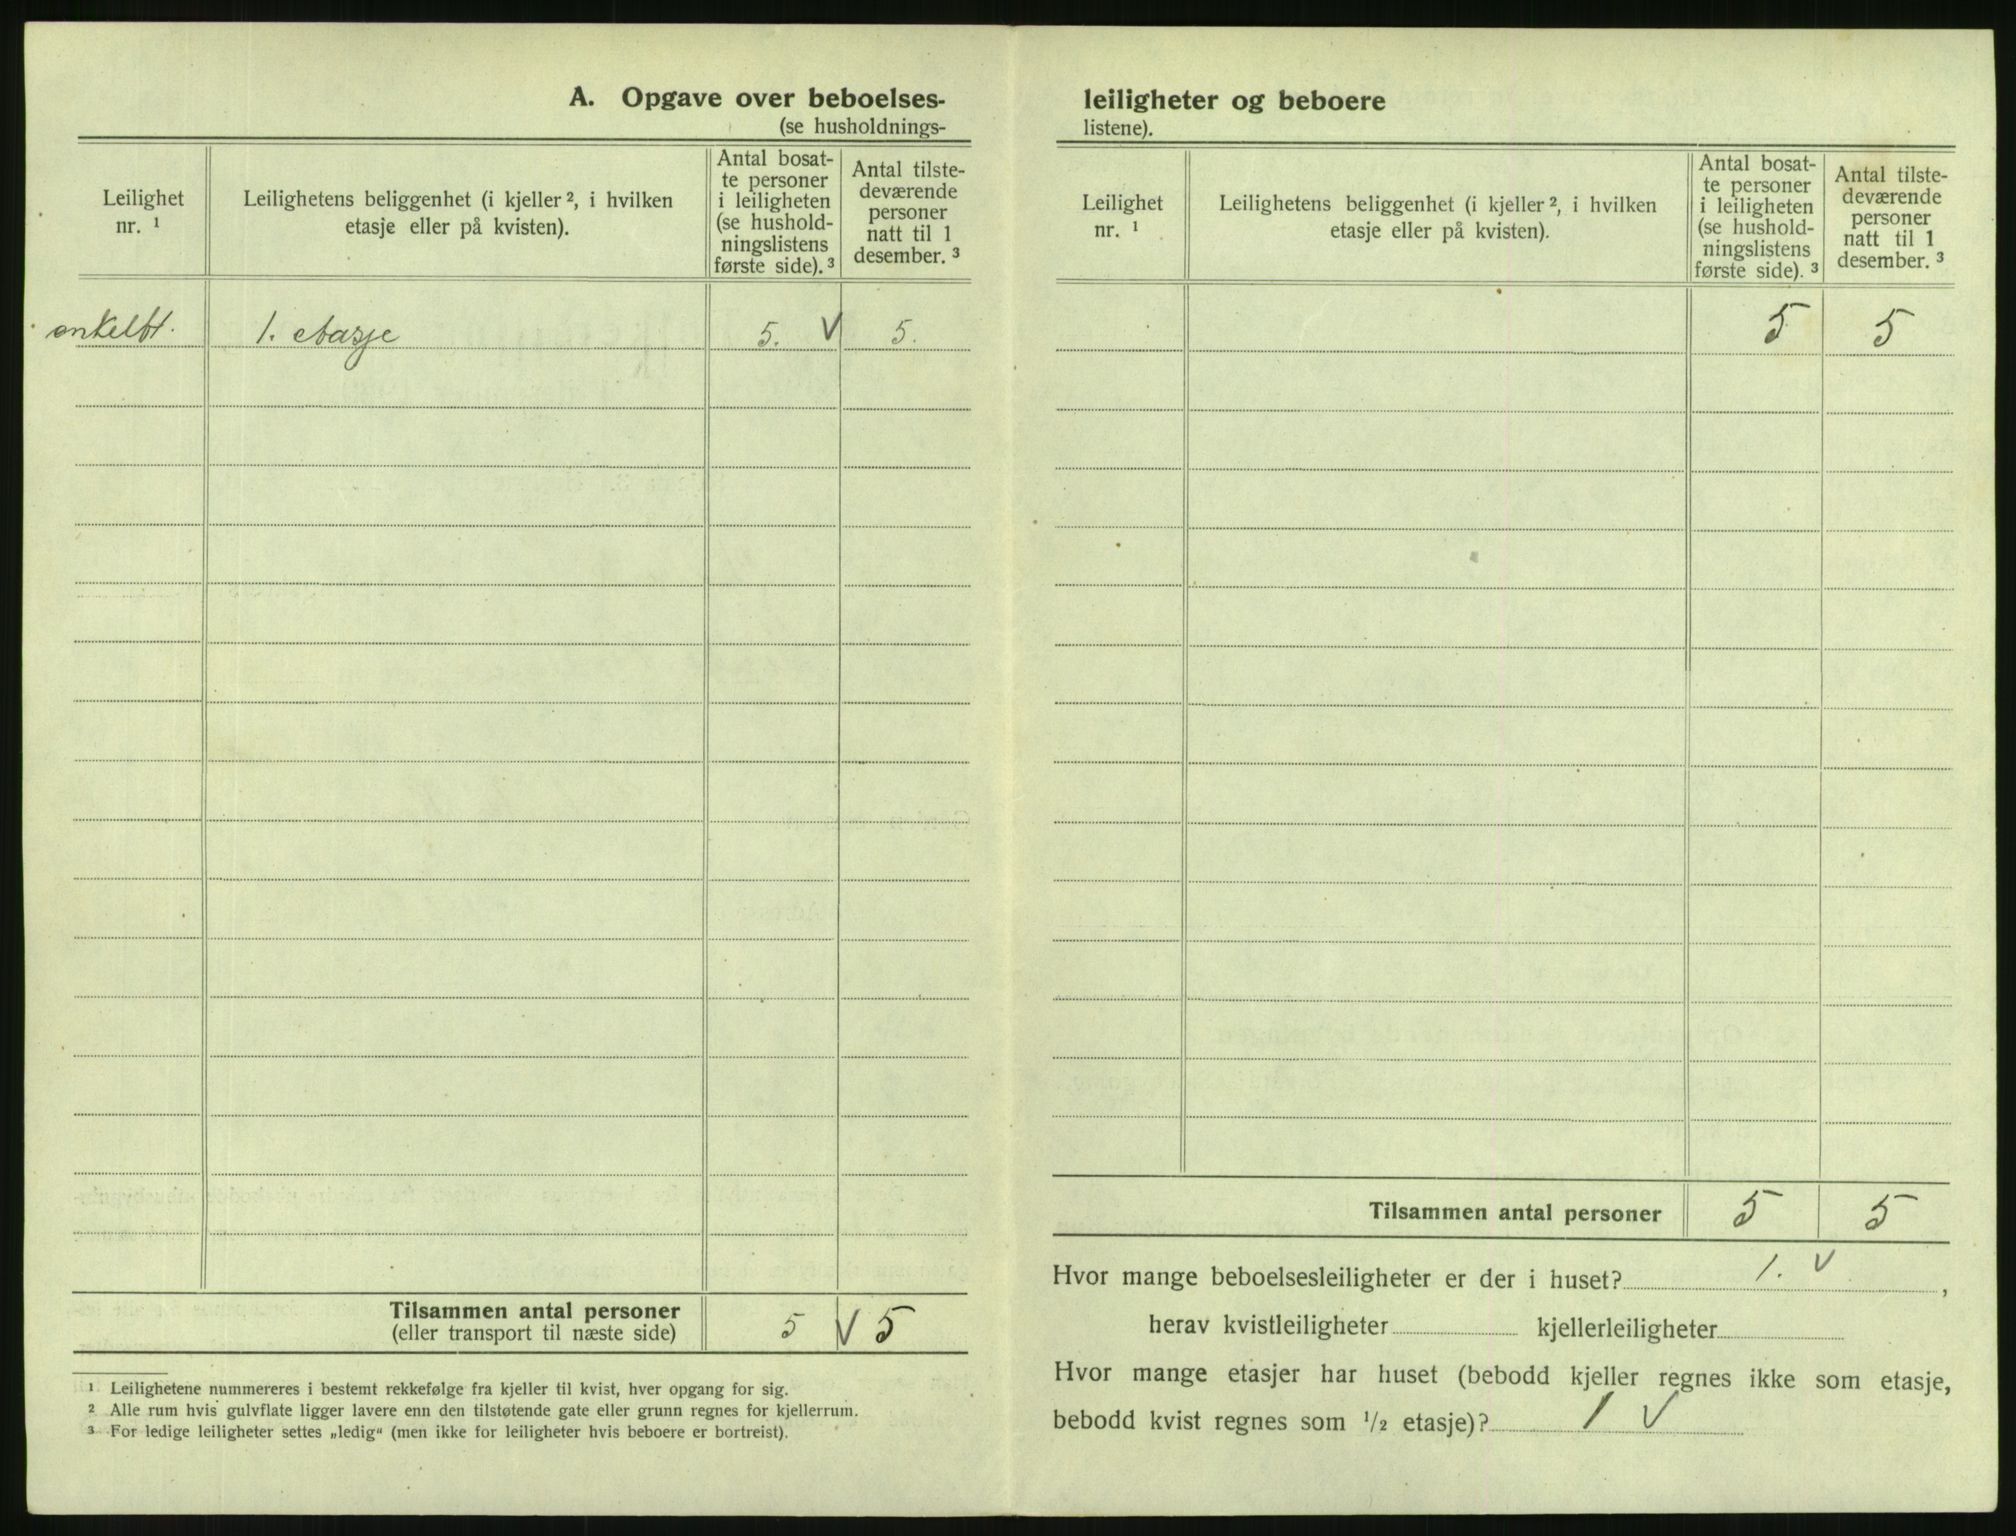 A. Opgave over beboelses-
(se husholdnings-
Leilighet
nr. ¹
Leilighetens beliggenhet (i kjeller ², i hvilken
etasje eller på kvisten).
Antal bosat-
te personer
i leiligheten
(se hushold-
ningslistens
første side). ³
Antal tilste-
deværende
personer
natt til 1
desember. ³
1. etasje 5. V 5.
Tilsammen antal personer 5 V 5
(eller transport til næste side)
¹ Leilighetene nummereres i bestemt rekkefølge fra kjeller til kvist, hver opgang for sig.
² Alle rum hvis gulvflate ligger lavere enn den tilstøtende gate eller grunn regnes for kjellerrum.
³ For ledige leiligheter settes „ledig" (men ikke for leiligheter hvis beboere er bortreist).
leiligheter og beboere
listene).
Leilighet
nr. ¹
Leilighetens beliggenhet (i kjeller ², i hvilken
etasje eller på kvisten).
Antal bosat-
te personer
i leiligheten
(se hushold-
ningslistens
første side). ³
Antal tilste-
deværende
personer
natt til 1
desember. ³
5 5
Tilsammen antal personer 5 5
Hvor mange beboelsesleiligheter er der i huset? 1. V ,
herav kvistleiligheter kjellerleiligheter
Hvor mange etasjer har huset (bebodd kjeller regnes ikke som etasje,
bebodd kvist regnes som ¹/₂ etasje)? 1 V